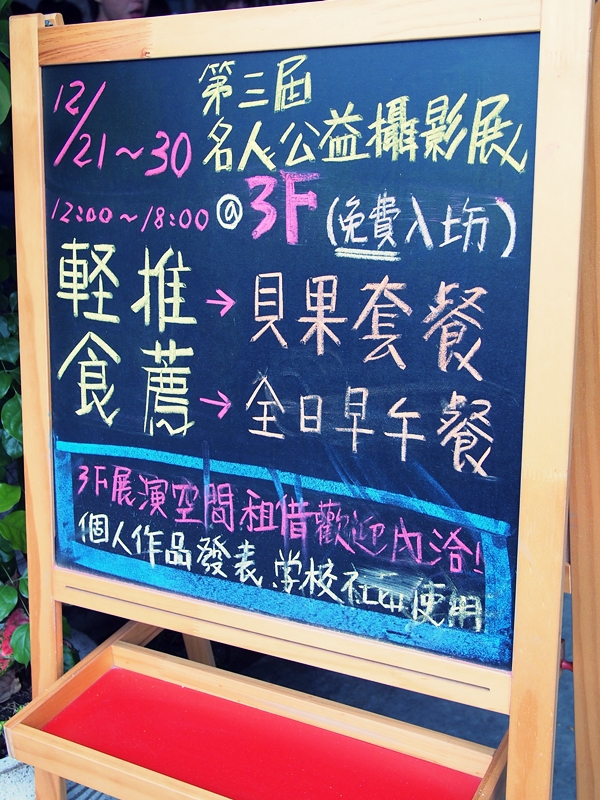 12/21~30
第三屆
名人公益攝影展
12:00~18:00 @ 3F (免費入場)
軽食
推薦
→ 貝果套餐
→ 全日早午餐
3F展演空間租借歡迎內洽!
個人作品發表 學校社團使用